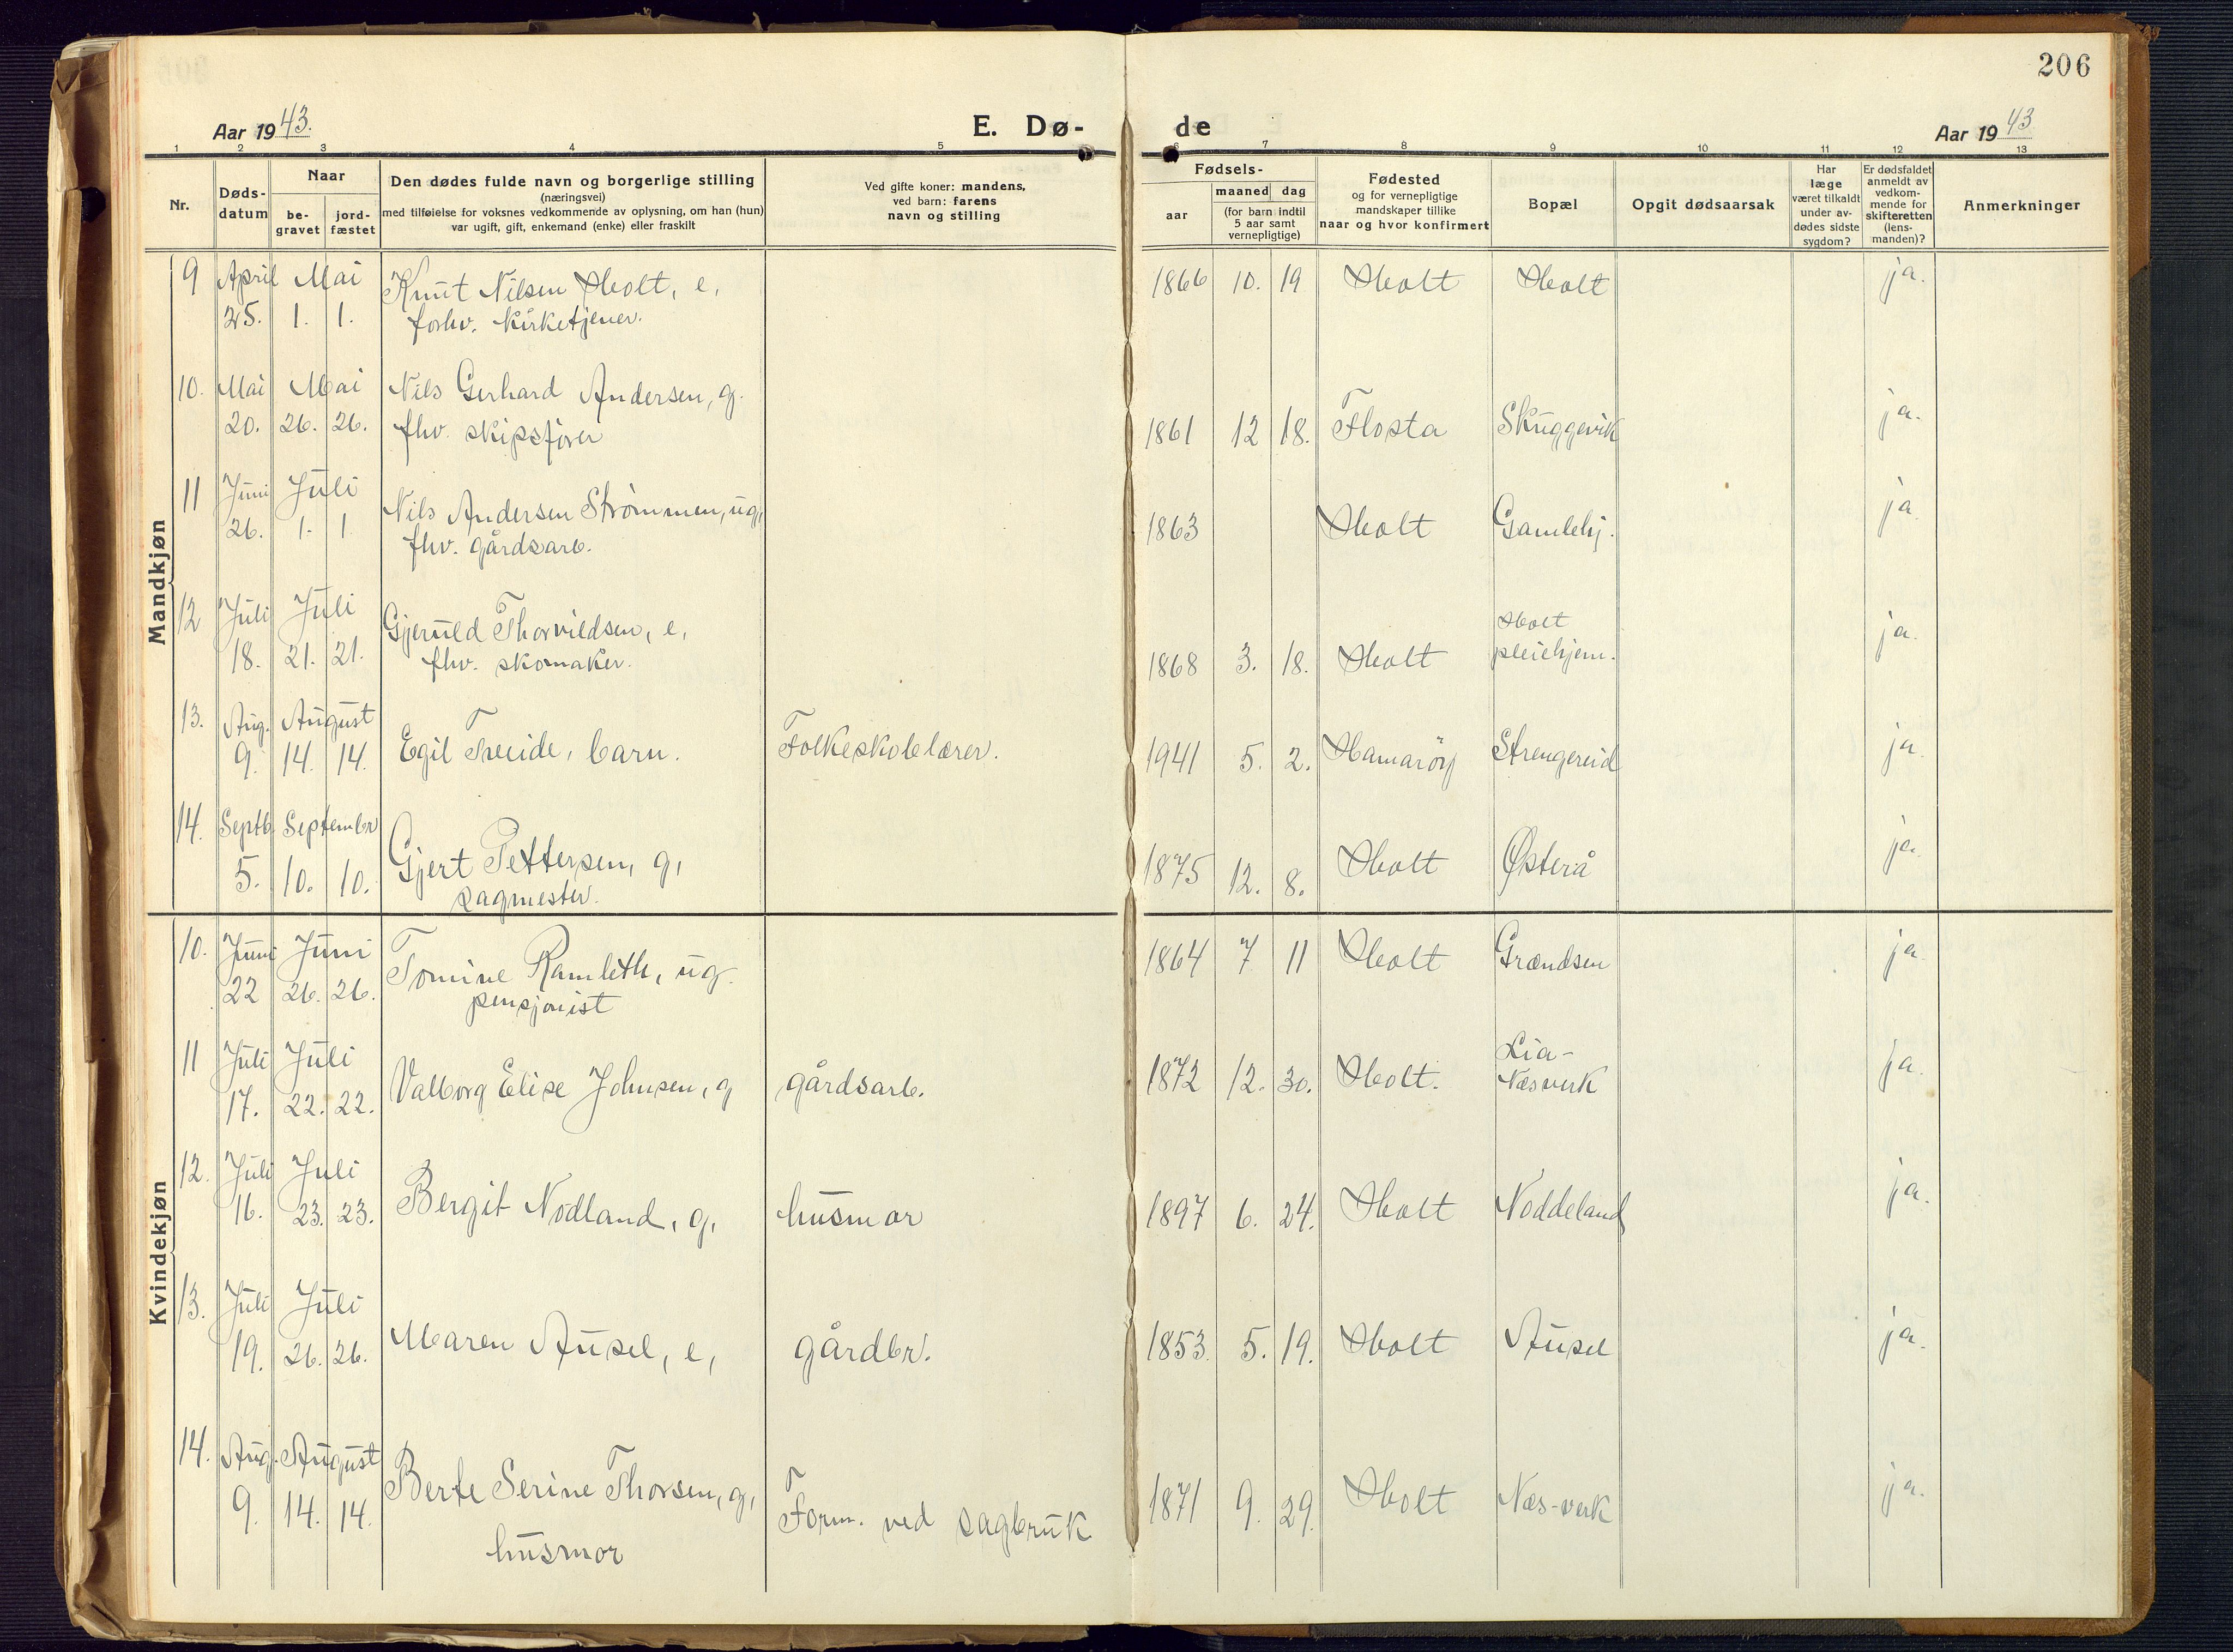 206
Aar 1943.
E. Dø-
de
Aar 1943
1 2 3 4 5 6 7 8 9 10 11 12 13
Nr.
Døds-
datum
Naar
be-
gravet
jord-
fæstet
Den dødes fulde navn og borgerlige stilling
(næringsvei)
med tilføielse for voksnes vedkommende av oplysning, om han (hun)
var ugift, gift, enkemand (enke) eller fraskilt
Ved gifte koner: mandens,
ved barn: farens
navn og stilling
Fødsels-
aar
maaned dag
(for barn indtil
5 aar samt
vernepligtige)
Fødested
og for vernepligtige
mandskaper tillike
naar og hvor konfirmert
Bopæl
Opgit dødsaarsak
Har
læge
været tilkaldt
under av-
dødes sidste
sygdom?
Er dødsfaldet
anmeldt av
vedkom-
mende for
skifteretten
(lens-
manden)?
Anmerkninger
Mandkjøn
9 April Mai Knut Nilsen Holt, e, 1866 10. 19 Holt Holt ja.
25. 1. 1. forhv. kirketjener.
10. Mai Mai Nils Gerhard Andersen, g. ja.
20. 26. 26. fhv. skipsfører 1861 12 18. Flosta Skuggevik
11 Juni Juli Nils Andersen Strømmen, ug, ja
26. 1. 1 fhv. gårdsarb. 1863 Holt Gamlehj.
12 Juli Juli Gjeruld Thorvildsen, e, Holt ja.
18. 21. 21. fhv. skomaker. 1868 3. 18. Holt pleiehjem.
13. Aug. August
9. 14. 14. Egil Treide, barn. Folkeskolelærer. 1941 5. 2. Hamarøy Strengereid ja.
14. Septb. September Gjert Pettersen, g, Holt Østerå ja.
5. 10. 10. sagmester. 1875 12. 8.
Kvindekjøn
10. Juni Juni Tomine Ramleth, ug. 1864 7 11 Holt Grændsen ja.
22 26. 26. pensjonist
11 Juli Juli Lia-
17. 22. 22. Valborg Elise Johnsen, g gårdsarb. 1872 12. 30. Holt. Næsverk ja.
12. Juli Juli
16. 23. 23. Bergit Nodland, g, husmor 1897 6. 24. Holt Noddeland ja.
13. Juli Juli
19. 26. 26. Maren Ausel, e, gårdbr. 1853. 5. 19. Holt Ausel ja.
14. Aug. August Berte Serine Thorsen, g,
9. 14. 14. husmor Form. ved sagbruk 1871 9. 29. Holt Næs-verk ja.